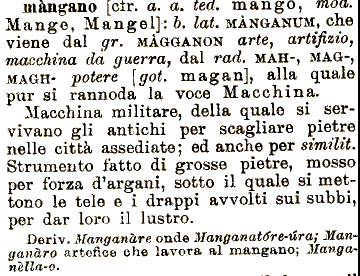 màngano [cfr. a. a. ted. mango, mod.
Mange, Mangel]: b. lat. MÀNGANUM, che
viene dal gr. MÀGGANON arte, artifizio,
macchina da guerra, dal rad. MAH-, MAG-,
MAGH- potere [got. magan], alla quale
pur si rannoda la voce Macchina.
Macchina militare, della quale si ser-
vivano gli antichi per scagliare pietre
nelle città assediate; ed anche per similit.
Strumento fatto di grosse pietre, mosso
per forza d'argani, sotto il quale si met-
tono le tele e i drappi avvolti sui subbi,
per dar loro il lustro.
Deriv. Manganàre onde Manganatóre-úra; Man-
ganàro artefice che lavora al mangano; Manga-
nèlla-o.